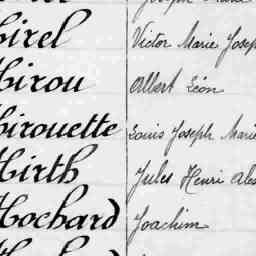 irel Victor Marie Josep
irou Albert Léon
irouette Louis Joseph Marie
irth Jules Henri Alex
Hochard Joachim